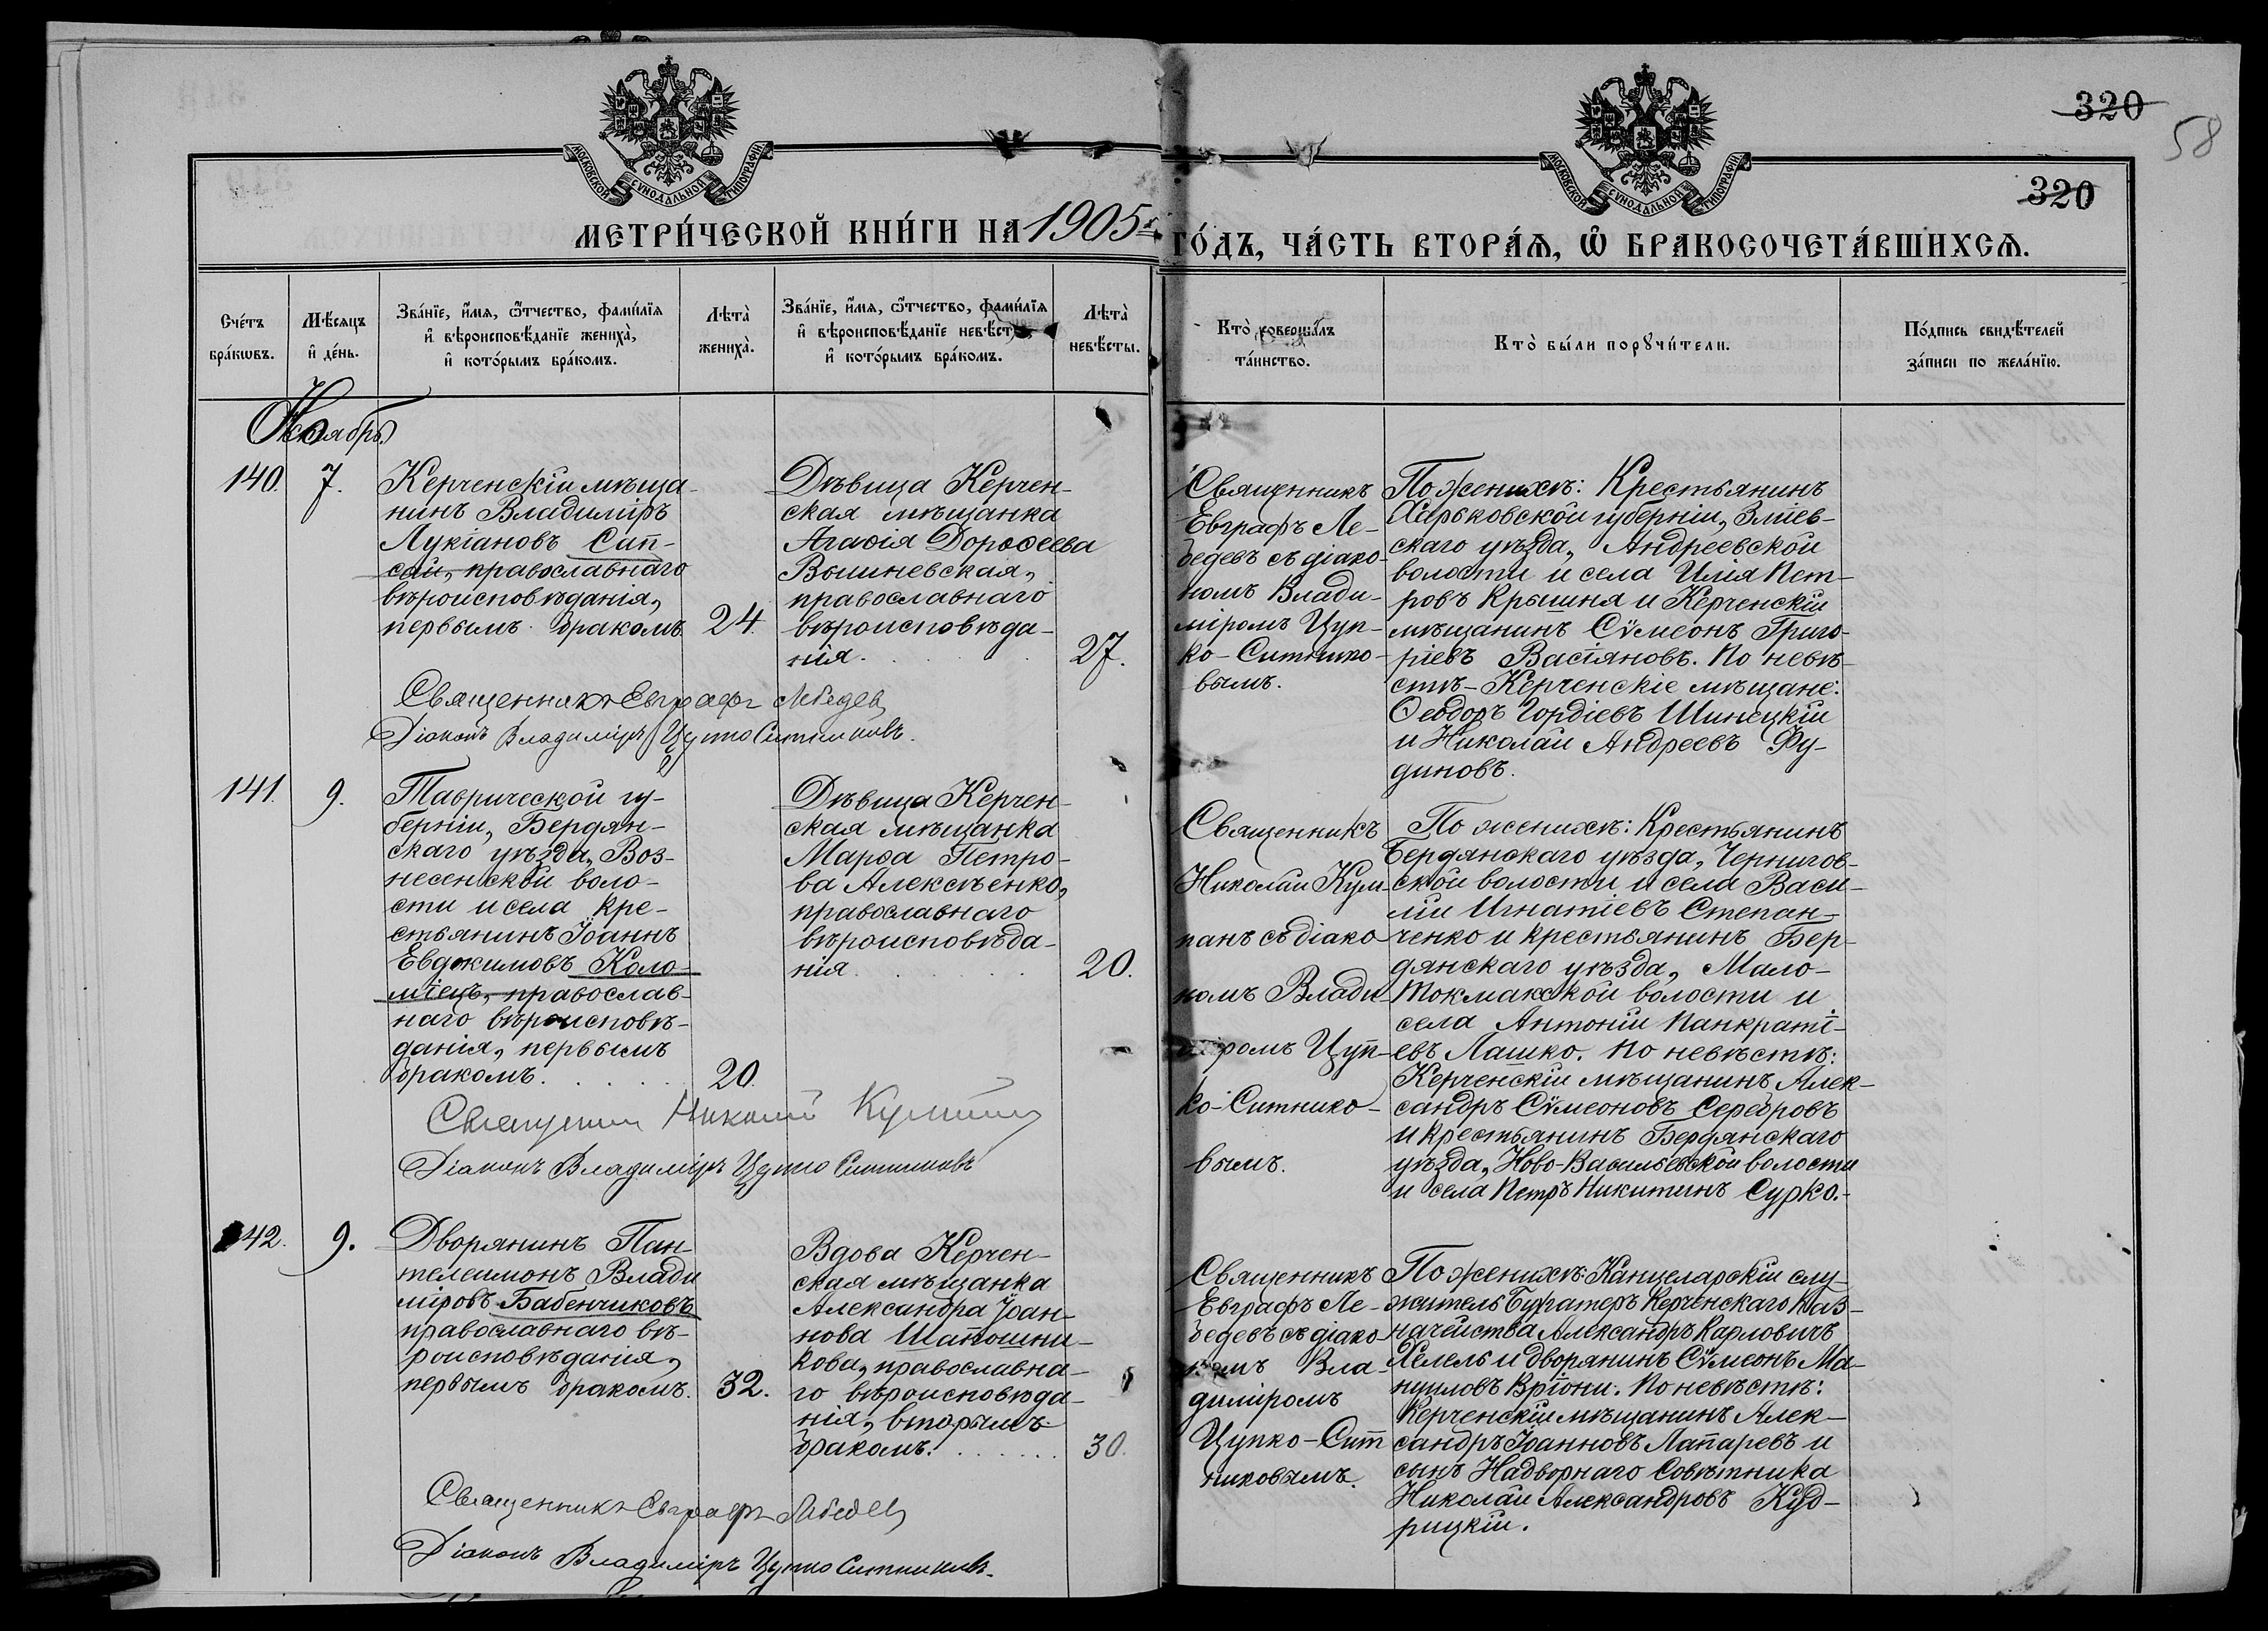 320
58
320
МОСКОВСКОЙ СѴНОДАЛЬНОЙ ТИПОГРАФІИ
МОСКОВСКОЙ СѴНОДАЛЬНОЙ ТИПОГРАФІИ
МЕТРИ́ЧЕСКОЙ КНИ́ГИ НА 1905
ГО́ДЪ, ЧА́СТЬ ВТОРА́Ѧ, Ѽ БРАКОСОЧЕТА́ВШИХСѦ.
Сче́тъ
бра́кѡвъ.
Мѣ́сяцъ
и҆ де́нь.
Зва́нїе, и҆́мѧ, ѻ҆́тчество, фами́лїѧ
и҆ вѣроисповѣ́данїе жениха̀,
и҆ кото́рымъ бра́комъ.
Лѣта̀
жениха̀.
Зва́нїе, и҆́мѧ, ѻ҆́тчество, фами́лїѧ
и҆ вѣроисповѣ́данїе невѣ́сты
и҆ кото́рымъ бра́комъ.
Лѣта̀
невѣ́сты.
Кто̀ соверша́лъ
та́инство.
Кто̀ бы́ли порꙋчи́тели.
По́дпись свидѣ́телей
за́писи по жела́нїю.
140.
7.
Керченскій мѣща-
нинъ Владиміръ
Лукіановъ Сап-
сай, православнаго
вѣроисповѣданія,
первымъ бракомъ
24.
Дѣвица Керчен-
ская мѣщанка
Агаѳія Дороѳеева
Вышневская,
православнаго
вѣроисповѣда-
нія.
27.
Священникъ
Евграфъ Ле-
бедевъ съ діако-
номъ Влади-
міромъ Цуп-
ко-Ситнико-
вымъ.
По женихѣ: Крестьянинъ
Харьковской губерніи, Зміев-
скаго уѣзда, Андреевской
волости и села Илія Пет-
ровъ Крышня и Керченскій
мѣщанинъ Сѵмеонъ Григо-
ріевъ Васіяновъ. По невѣ-
стѣ-Керченскіе мѣщане:
Ѳеодоръ Гордіевъ Шинецкій
и Николай Андреевъ Фу-
диновъ.
Священникъ Евграфъ Лебедев
Діаконъ Владиміръ Цупко Ситниковъ.
141.
9.
Таврической гу-
берніи, Бердян-
скаго уѣзда, Воз-
несенской воло-
сти и села кре-
стьянинъ Іоаннъ
Евдокимовъ Коло-
міецъ, православ-
наго вѣроисповѣ-
данія, первымъ
бракомъ.
20.
Дѣвица Керчен-
ская мѣщанка
Марѳа Петро-
ва Алексѣенко,
православнаго
вѣроисповѣда-
нія
20.
Священникъ
Николай Кум-
панъ съ діако
номъ Влади-
міромъ Цуп-
ко-Ситнико-
вымъ.
По женихѣ: Крестьянинъ
Бердянскаго уѣзда, Чернигов-
ской волости и села Васи-
лій Игнатіевъ Степан-
ченко и крестьянинъ Бер-
дянскаго уѣзда, Мало-
Токмакской волости и
села Антоній Панкраті-
евъ Лашко. По невѣстѣ:
Керченскій мѣщанинъ Алек-
сандръ Сѵмеоновъ Серебровъ
и крестьянинъ Бердянскаго
уѣзда, Ново-Васильевской волости
и села Петръ Никитинъ Сурко.-
Николай
Діаконъ Владиміръ Цупко Ситниковъ
142.
9.
Дворянинъ Пан-
телеимонъ Влади
міровъ Бабенчиковъ
православнаго вѣ-
роисповѣданія,
первымъ бракомъ.
32.
Вдова Керчен-
ская мѣщанка
Александра Іоан-
нова Шапошни-
кова, православна-
го вѣроисповѣда-
нія, вторымъ
бракомъ.
30.
Священникъ
Евграфъ Ле-
бедевъ съ діако
номъ Вла-
диміромъ
Цупко-Сит
никовымъ.
По женихѣ: Канцелярскій слу-
житель Бухгатеръ Керченскаго Каз-
начейства Александръ Карловичъ
Хелель и дворянинъ Сѵмеонъ Ма-
нуиловъ Вріони. По невѣстѣ:
Керченскій мѣщанинъ Алек-
сандръ Іоанновъ Лапаревъ и
сынъ Надворнаго Совѣтника
Николай Александровъ Куд-
рицкій.
Священникъ Евграфъ Лебедев
Діаконъ Владиміръ Цупко Ситниковъ.